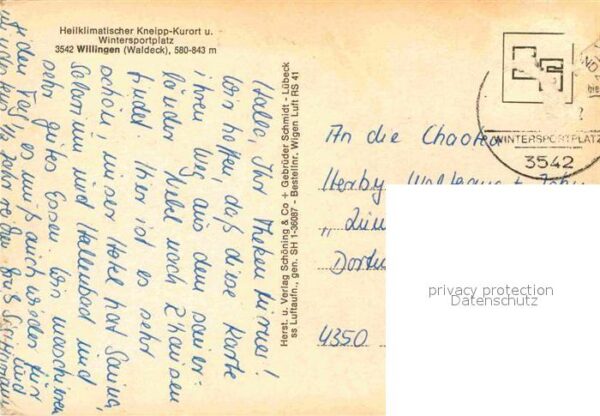 Heilklimatischer Kneipp-Kurort u.
Wintersportplatz
3542 Willingen (Waldeck), 580-843 m
Hallo Ihr Theken
Wir hoffen, daß diese Karte
ihren Weg aus dem
nach Zhausen
findet. Hier ist es sehr
schön, unser Hotel hat Sauna,
Solarium und Hallenbad und
sehr gutes Essen. Wir maschieren
jeden Tag, es muß auch wieder für
1/2 Jahr
Herst. u. Verlag Schöning & Co + Gebrüder Schmidt - Lübeck
ss Luftaufn., gen. SH 1-36087 - Bestellnr. Wigen Luft RS 41
WINTERSPORTPLATZ
3542
An die Chaoten
Dortm
4350
privacy protection
Datenschutz